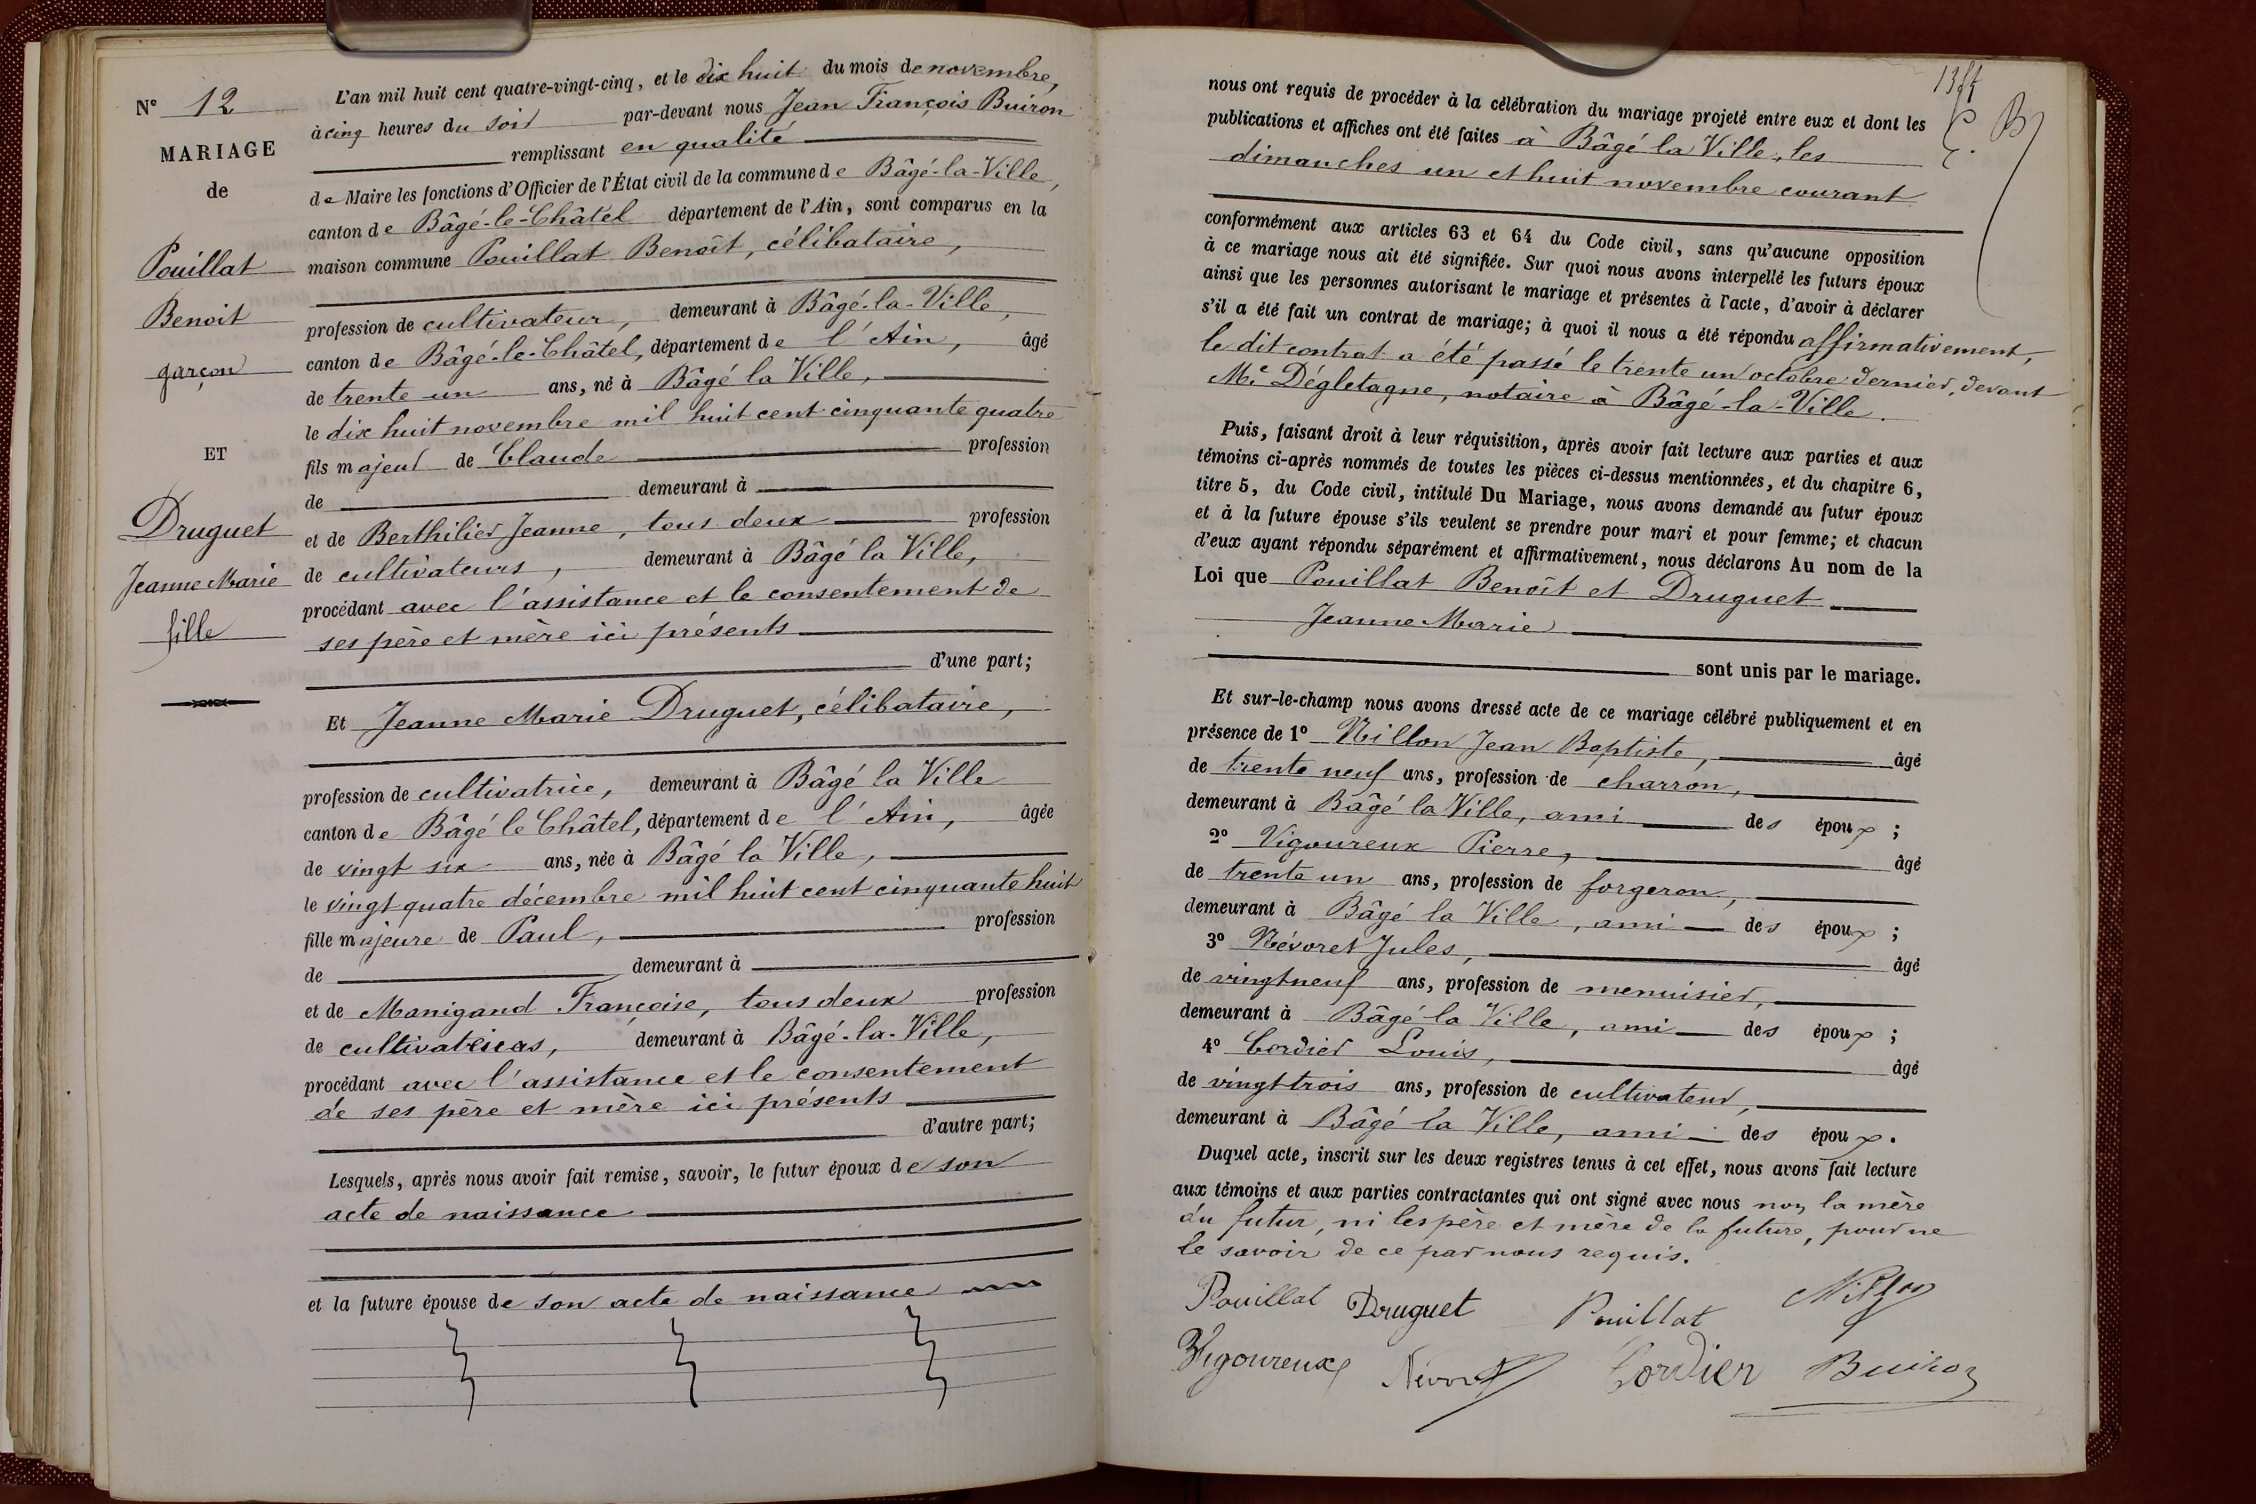 N° 12
MARIAGE
de
Pouillat
Benoit
garçon
ET
Druguet
Jeanne Marie
fille
L'an mil huit cent quatre-vingt-cinq, et le dix huit du mois de novembre,
à cinq heures du soir par-devant nous Jean François Buiron
remplissant en qualité
de Maire les fonctions d'Officier de l'État civil de la commune de Bâgé-la-Ville,
canton de Bâgé-le-Châtel département de l'Ain, sont comparus en la
maison commune Pouillat Benoît, célibataire,
profession de cultivateur, demeurant à Bâgé-la-Ville,
canton de Bâgé-le-Châtel, département de l'Ain, âgé
de trente un ans, né à Bâgé la Ville,
le dix huit novembre mil huit cent cinquante quatre
fils majeur de Claude profession
de demeurant à
et de Berthilier Jeanne, tous deux profession
de cultivateurs, demeurant à Bâgé la Ville,
procédant avec l'assistance et le consentement de
ses père et mère ici présents
d'une part;
Et Jeanne Marie Druguet, célibataire,
profession de cultivatrice, demeurant à Bâgé la Ville
canton de Bâgé le Châtel, département de l'Ain, âgée
de vingt six ans, née à Bâgé la Ville,
le vingt quatre décembre mil huit cent cinquante huit
fille majeure de Paul, profession
de demeurant à
et de Manigand Françoise, tous deux profession
de demeurant à Bâgé-la-Ville,
procédant avec l'assistance et le consentement
de ses père et mère ici présents
d'autre part;
Lesquels, après nous avoir fait remise, savoir, le futur époux de son
acte de naissance
et la future épouse de son acte de naissance
B
nous ont requis de procéder à la célébration du mariage projeté entre eux et dont les
publications et affiches ont été faites à Bâgé la Ville, les
dimanches un et huit novembre courant
conformément aux articles 63 et 64 du Code civil, sans qu'aucune opposition
à ce mariage nous ait été signifiée. Sur quoi nous avons interpellé les futurs époux
ainsi que les personnes autorisant le mariage et présentes à l'acte, d'avoir à déclarer
s'il a été fait un contrat de mariage; à quoi il nous a été répondu affirmativement,
le dit contrat a été passé le trente un octobre dernier, devant
Me Dégletagne, notaire à Bâgé-la-Ville.
Puis, faisant droit à leur réquisition, après avoir fait lecture aux parties et aux
témoins ci-après nommés de toutes les pièces ci-dessus mentionnées, et du chapitre 6,
titre 5, du Code civil, intitulé Du Mariage, nous avons demandé au futur époux
et à la future épouse s'ils veulent se prendre pour mari et pour femme; et chacun
d'eux ayant répondu séparément et affirmativement, nous déclarons Au nom de la
Loi que Pouillat Benoît et Druguet
Jeanne Marie
sont unis par le mariage.
Et sur-le-champ nous avons dressé acte de ce mariage célébré publiquement et en
présence de 1° Nillon Jean Baptiste, âgé
de trente neuf ans, profession de charron,
demeurant à Bâgé la Ville, ami des époux;
2° Vigoureux Pierre, âgé
de trente un ans, profession de forgeron,
demeurant à Bâgé la Ville, ami des époux;
3° Névoret Jules, âgé
de vingt neuf ans, profession de menuisier,
demeurant à Bâgé la Ville, ami des époux;
4° Cordier Louis, âgé
de vingt trois ans, profession de cultivateur,
demeurant à Bâgé la Ville, ami des époux.
Duquel acte, inscrit sur les deux registres tenus à cet effet, nous avons fait lecture
aux témoins et aux parties contractantes qui ont signé avec nous non la mère
du futur, ni les père et mère de la future, pour ne
le savoir de ce par nous requis.
Pouillat Druguet Pouillat Nillon
Vigoureux Névoret Cordier Buiron